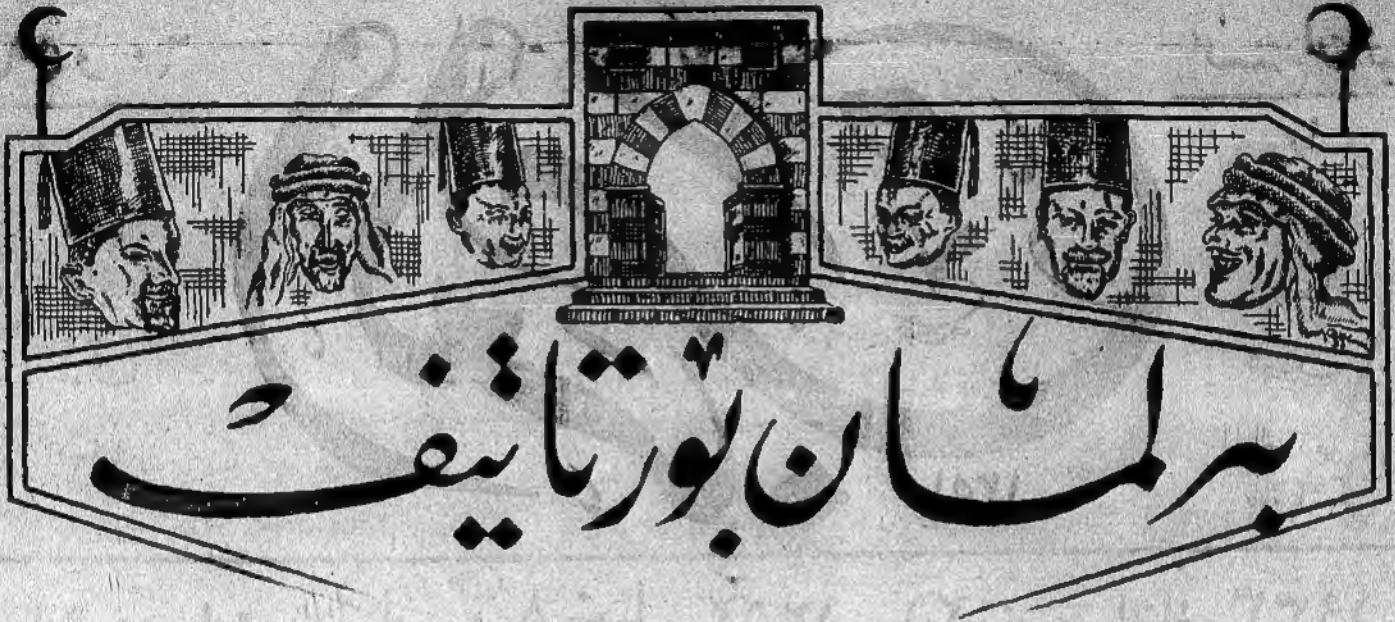 برلمان بورتاتيف